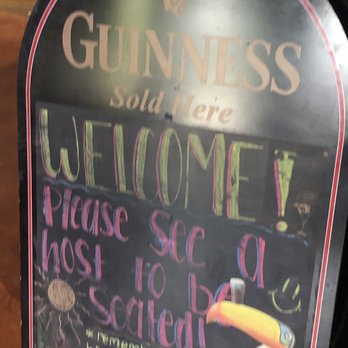 GUINNESS
Sold Here
WELCOME!
Please see a
host to be
seated!
*remember